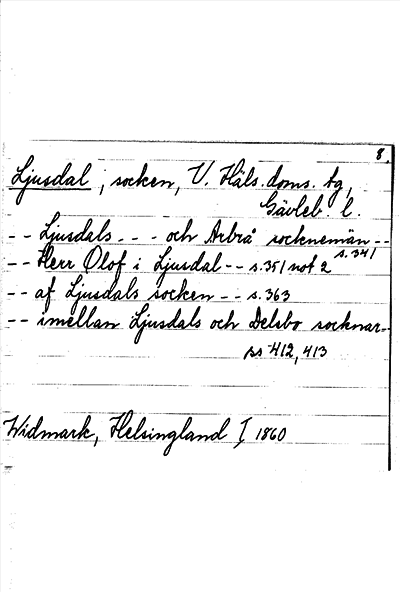 8.
Ljusdal, socken, V. Häls. doms. tg,
Gävleb. l.
-- Ljusdals - - - och Arbrå socknemän --
s. 341
-- Herr Olof i Ljusdal -- s. 351 not 2
-- af Ljusdals socken -- s. 363
-- imellan Ljusdals och Delsbo socknar --
ss 412, 413
Widmark, Helsingland I, 1860